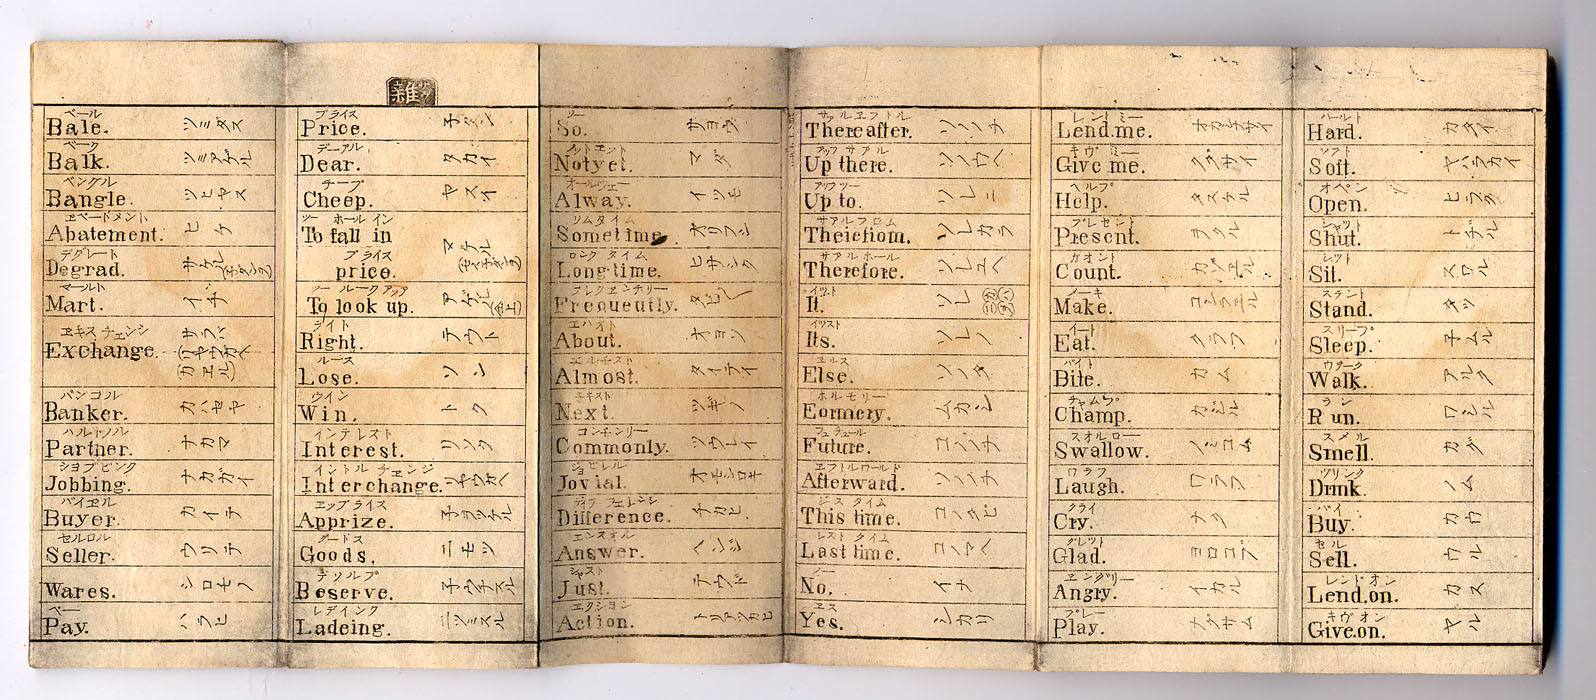 雑
ベール
Bale. ツミダス
ベーク
Balk. ツミアゲル
ベングル
Bangle. ツヒヤス
ヱベードメント
Abatement. ヒケ
デグレート
Degrad. サケル
マールト
Mart. イチ
ヱキスチェンシ
Exchange.
バンコル
Banker. カハセヤ
ハルトノル
Partner. ナカマ
ショブピンク
Jobbing. ナカガイ
バイヱル
Buyer. カイテ
セルロル
Seller. ウリテ
Wares. シロモノ
ペー
Pay. ハラヒ
プライス
Price. 子ダン
デーアル
Dear. タカイ
チープ
Cheep. ヤスイ
ツー ホール イン
To fall in
プライス
price. マケル
ツー ルーク アップ
To look up. アゲル
ライト
Right. テウト
ルース
Lose. ソン
ウイン
Win. トク
インテレスト
Interest. リソク
イントル チェンジ
Interchange.
ヱップライス
Apprize. 子ヲツケル
グードス
Goods, ニモツ
Beserve.
レデインク
Ladeing. ニツミスル
ソー
So. サヨウ
ノットエット
Notyet. マダ
オールウェー
Alway. イツモ
ソムタイム
Sometime. オリフシ
ロング タイム
Longtime. ヒサシク
フレクヱンチリー
Frequently.
エバオト
About. オヨソ
エルモスト
Almost. タイテイ
子キスト
Next. ツギノ
コンモンリー
Commonly. ツウレイ
ジョビレル
Jovial. オモシロキ
Difference. チカヒ
エンスオル
Answer. ヘンジ
ジャスト
Just. テウド
エクション
Action.
Thereafter. ソノノチ
アップ サアル
Up there. ソノウヘ
アップ ツー
Up to. ソレニ
サアルフロム
Theiefiom. ソレカラ
サアル ホール
Therefore. ソレユヘ
イット
It. ソレ
イツスト
Its. ソレノ
ヱルス
Else. ソノタ
ホルモリー
Eormery. ムカシ
フューチュール
Future. コノノチ
ヱフトルワールド
Afterward. ソノノチ
ジス タイム
This time. コノタビ
レスト タイム
Last time. コノマヘ
ノー
No. イナ
ヱス
Yes. シカリ
レンド ミー
Lend.me. オカシナサイ
ギヴ ミー
Give me. クダサイ
ヘルプ
Help. タスケル
プレセント
Present.
カオント
Count. カゾエル
メーキ
Make. コシラエル
イート
Eat. クラフ
バイト
Bite. カム
チャムプ
Champ. カジル
スオルロー
Swallow. ノミコム
ワラフ
Laugh. ワラフ
クライ
Cry. ナク
グレツト
Glad. ヨロコブ
ヱングリー
Angry. イカル
プレー
Play. ナグサム
ハールト
Hard. カタイ
ソフト
Soft. ヤハラカイ
オペン
Open. ヒラク
シャット
Shut. トヂル
シット
Sit. スワル
スタント
Stand. タツ
スリープ
Sleep. 子ムル
ウヲーク
Walk. アルク
ラン
Run. ワシル
スメル
Smell. カグ
ヅリンク
Drink. ノム
バイ
Buy. カウ
セル
Sell. ウル
レンド オン
Lend.on. カス
ギヴ オン
Give.on. ヤル